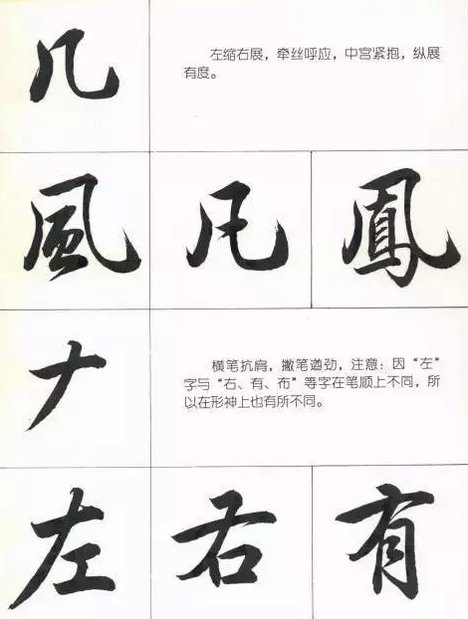 几
左缩右展，牵丝呼应，中宫紧抱，纵展
有度。
風 凡 鳳
𠂇
横笔抗肩，撇笔遒劲，注意：因“左”
字与“右、有、布”等字在笔顺上不同，所
以在形神上也有所不同。
左 右 有